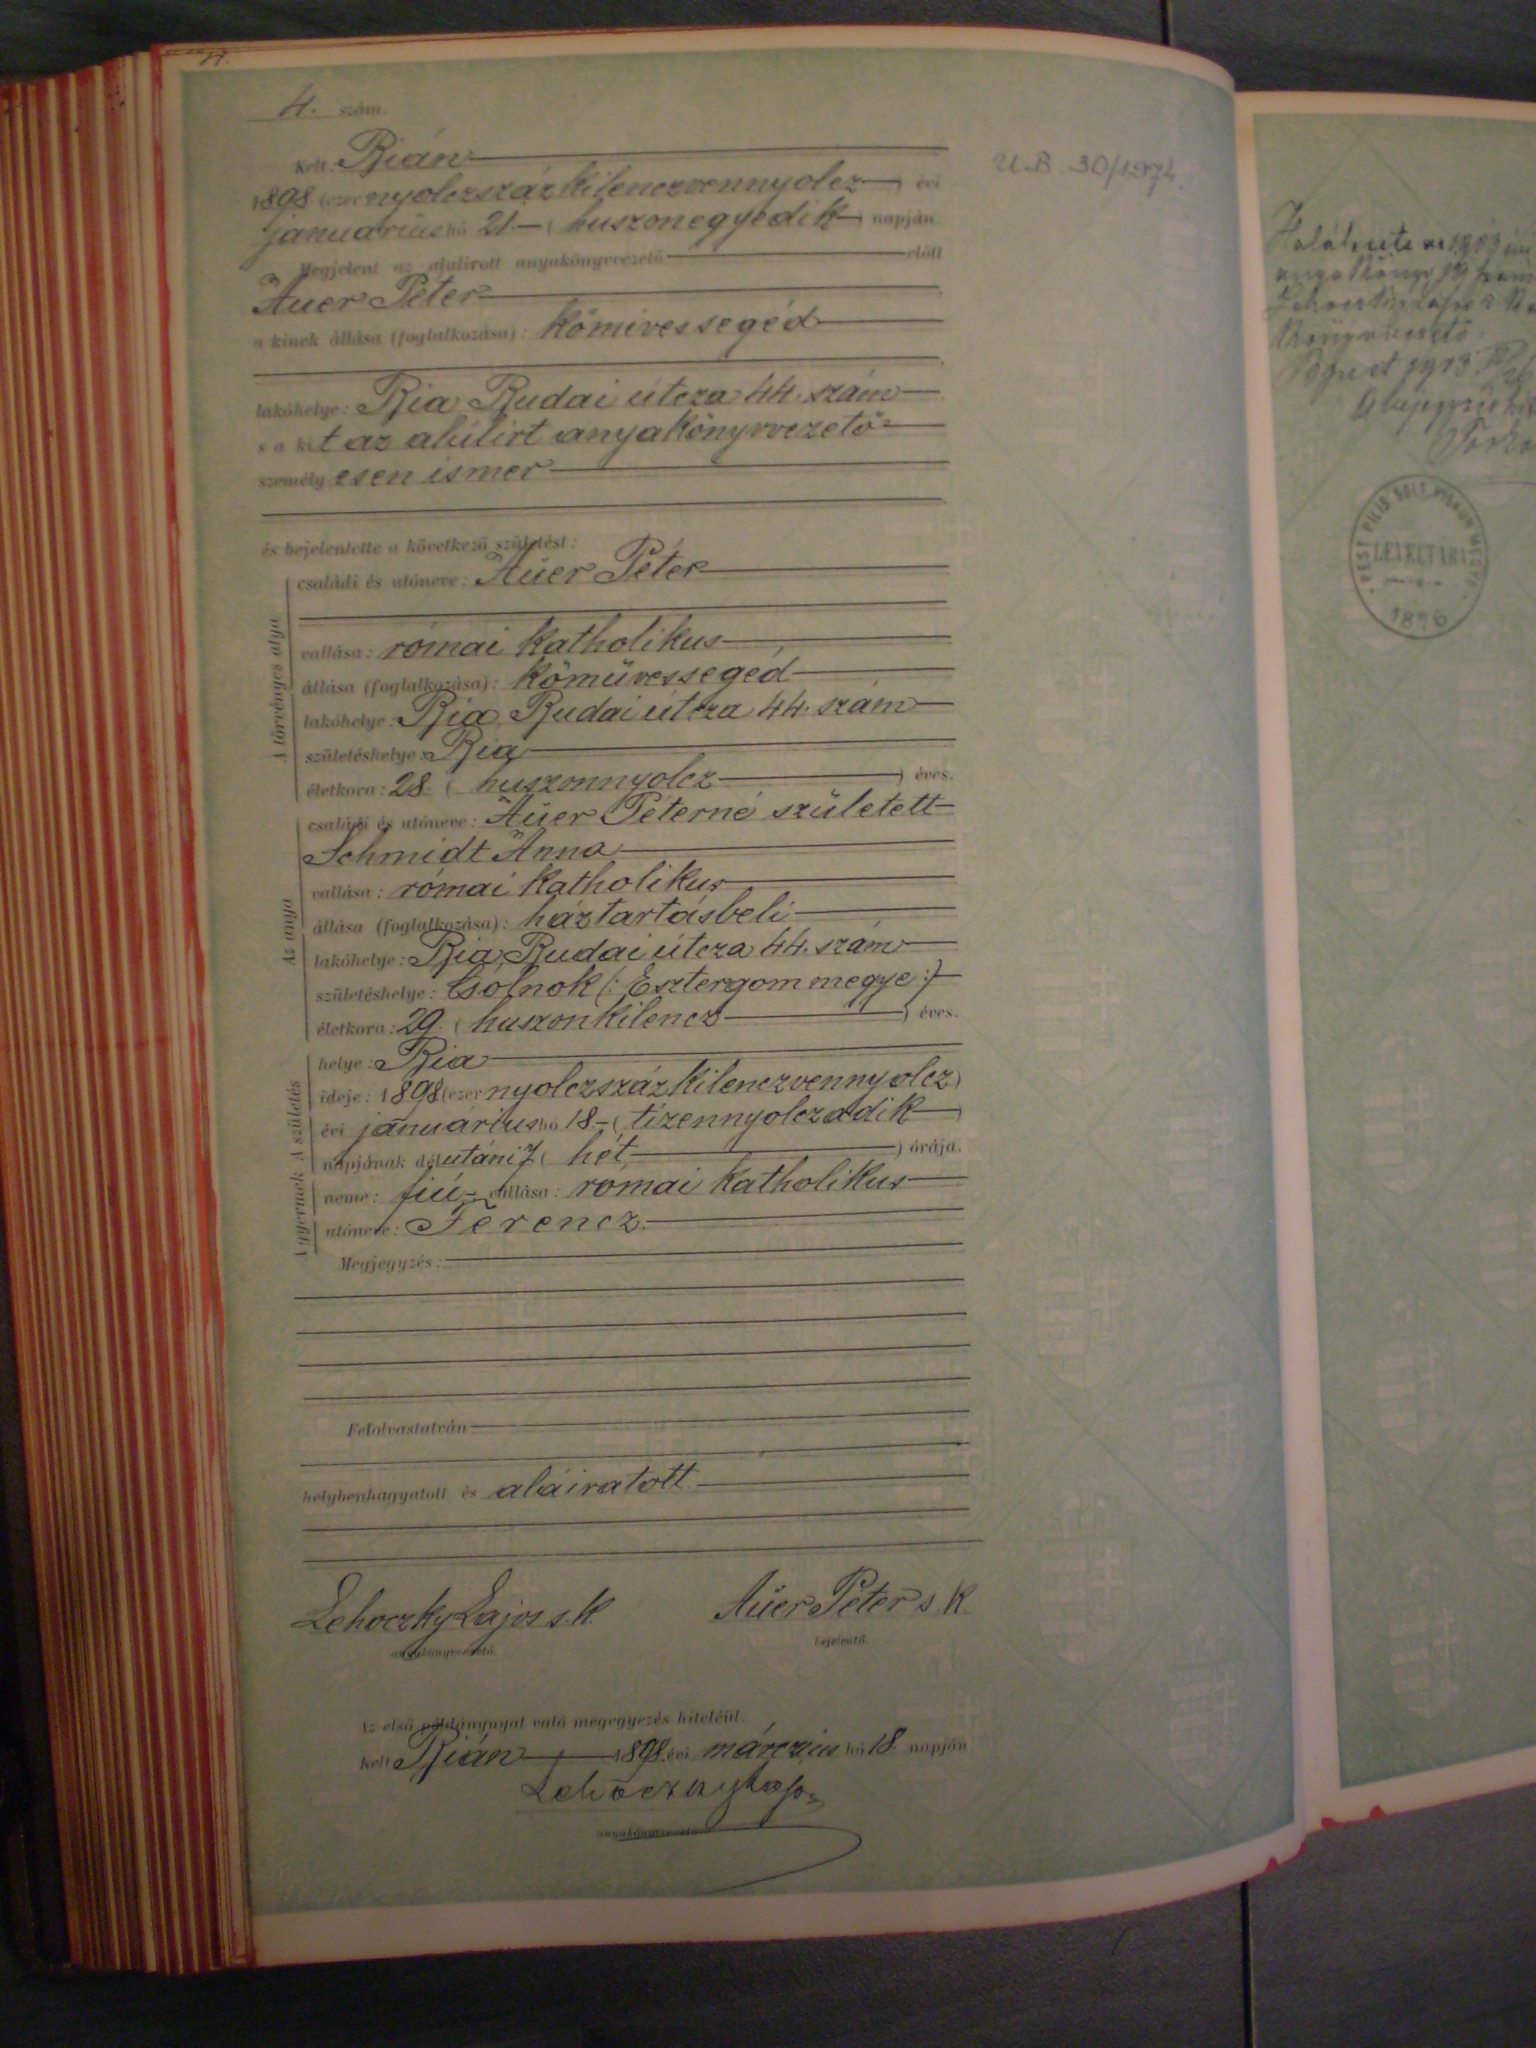 4. szám.
Kelt Bián
1898 (ezer nyolczszáz kilenczvennyolcz) évi
januárius hó 21. – (huszonegyedik) napján.
Megjelent az alulirott anyakönyvvezető előtt
Auer Péter
a kinek állása (foglalkozása): kőmivessegéd
lakóhelye: Bia Budai útcza 44. szám
s a kit az alúlirt anyakönyvvezető
személyesen ismer
és bejelentette a következő születést:
A törvényes atya
családi és utóneve: Aŭer Péter
vallása: római katholikus
állása (foglalkozása): kőmüvessegéd
lakóhelye: Bia Budai útcza 44. szám
születéshelye: Bia
életkora: 28. (huszonnyolcz) éves.
Az anya
családi és utóneve: Aŭer Péterné született
Schmidt Anna
vallása: római katholikus
állása (foglalkozása): háztartásbeli
lakóhelye: Bia Budai útcza 44. szám
születéshelye: Csolnok (: Esztergom megye :)
életkora: 29. (huszonkilencz) éves.
A gyermek A születés
helye: Bia
ideje: 1898 (ezer nyolczszáz kilenczvennyolcz)
évi januárius hó 18 – (tizennyolczadik)
napjának délutáni 7 (hét) órája.
neme: fiú – vallása: romai katholikus
utóneve: Ferencz.
Megjegyzés:
Felolvastatván
helybenhagyatott és aláiratott
Lehoczky Lajos s. k. Aŭer Péter s. k.
anyakönyvvezető. bejelentő.
Az első példánynyal való megegyezés hiteléül.
Kelt Bián 1898 évi márczius hó 18. napján
Lehoczky Lajos
anyakönyvvezető
U.B 30/1974.
anyakönyv
PEST PILIS SOLT KISKUN MEGYE
LEVÉLTÁRA
1876